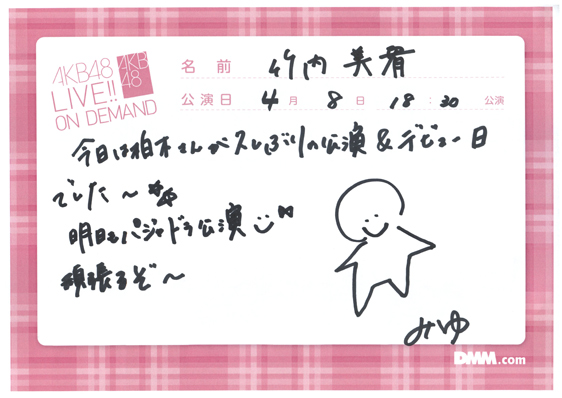 AKB48
LIVE!!
ON DEMAND
AKB
48
名前 竹内 美宥
公演日 4月 8日 18:30 公演
今日は柏木さんが久しぶりの公演&デビュー日
でした〜☆
明日もパジャドラ公演
頑張るぞ〜
みゆ
DMM.com